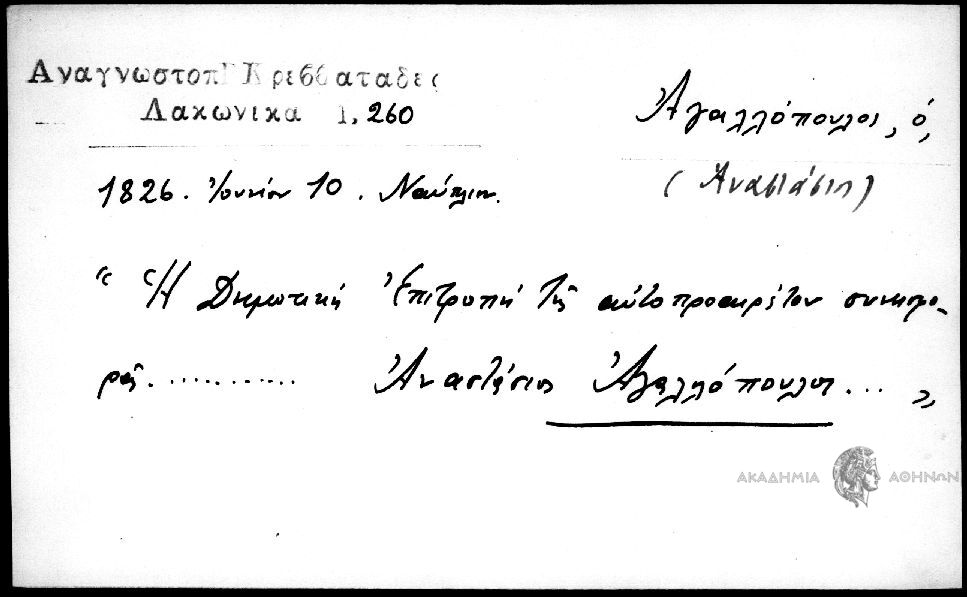 Αναγνωστοπ Κρεββαταδες
Λακωνικα 1, 260
Ἀγαλλόπουλος, ὁ,
(Ἀναστάσιος)
1826. Ἰουνίου 10. Ναύπλιον.
“ Ἡ Δημοτική Ἐπιτροπή τῆς αὐτοπροαιρέτου συνεισφο-
ρᾶς. .......... Ἀναστάσιος Ἀγαλλόπουλος ... ”
ΑΚΑΔΗΜΙΑ ΑΘΗΝΩΝ